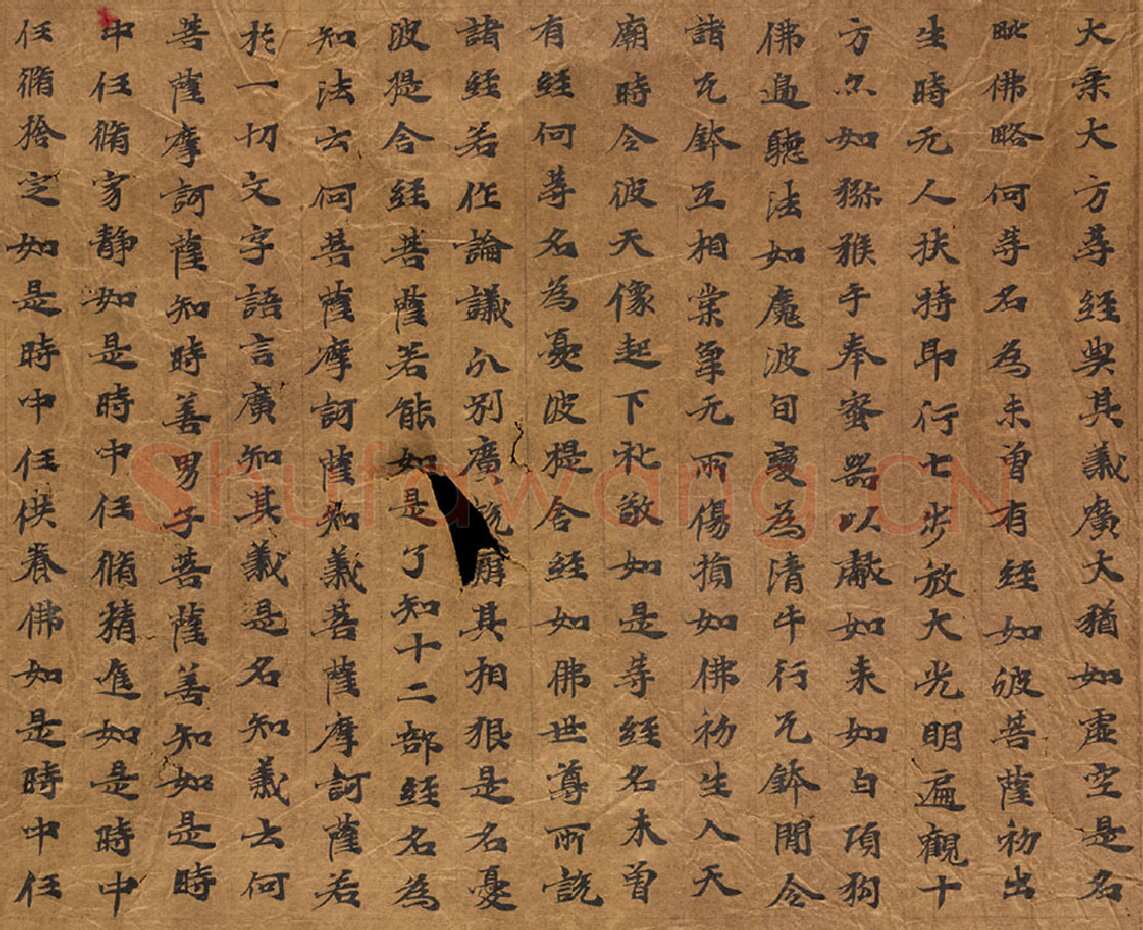 大乘大方等經典其義廣大猶如虛空是名
毗佛略何等名為未曾有經如彼菩薩初出
生時无人扶持即行七步放大光明遍觀十
方亦如獼猴手奉蜜器以獻如來如白項狗
佛邊聽法如魔波旬變為清牛行瓦鉢間令
諸瓦鉢互相棠无所傷損如佛初生入天
廟時令彼天像起下礼敬如是等經名未曾
有經何等名為憂波提舍經如佛世尊所說
諸經若作論議分別廣說其相貌是名憂
波提舍經菩薩若能如是了知十二部經名為
知法云何菩薩摩訶薩知義菩薩摩訶薩若
於一切文字語言廣知其義是名知義云何
菩薩摩訶薩知時善男子菩薩善知如是時
中任脩寂靜如是時中任脩精進如是時中
任脩捨定如是時中任供養佛如是時中任
Shufawang.CN